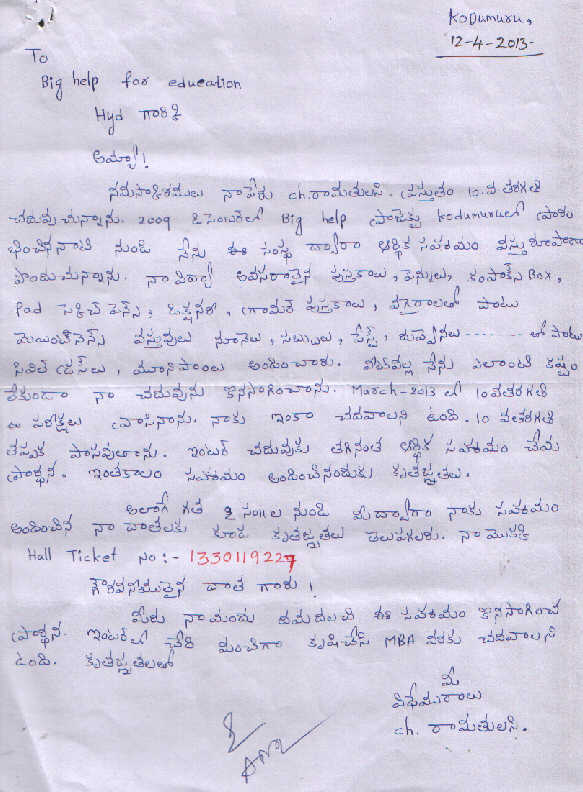 Kodumuru,
12-4-2013-
To
Big help for education
Hyd గారికి
అమ్మా!
నమస్కారములు నా పేరు ch. రామతులసి. ప్రస్తుతం 10.వ తరగతి
చదువుచున్నాను. 2009 డిసెంబర్‌లో Big help ప్రాజెక్టు Kodumuruలో ప్రారం
భించిన నాటి నుండి నేను ఈ సంస్థ ద్వారా ఆర్థిక సహాయం వస్తు రూపంగా
పొందుచున్నాను. నా విద్యా అవసరాలైన పుస్తకాలు, పెన్నులు, కంపాక్స్ Box,
Pad స్కెచ్ పెన్స్, డిక్షనరీ, గ్రామర్ పుస్తకాలు, వగైరాలతో పాటు
మెయింటెనెన్స్ వస్తువులు నూనెలు, సబ్బులు, పేస్ట్, దువ్వెనలు -------- లతో పాటు
సివిల్ డ్రస్‌లు, యూనిఫాంలు అందించారు. వీటివల్ల నేను ఎలాంటి కష్టం
లేకుండా నా చదువును కొనసాగించాను. March-2013 లో 10వతరగతి
పరీక్షలు వ్రాసినాను. నాకు ఇంకా చదవాలని ఉంది. 10 వతరగతి
తప్పక పాసవుతాను. ఇంటర్ చదువుకు తగినంత ఆర్థిక సహాయం చేయ
ప్రార్థన. ఇంతకాలం సహాయం అందించినందుకు కృతజ్ఞతలు.
అలాగే గత 2 సం॥ల నుండి మీ ద్వారా నాకు సహాయం
అందించిన నా దాతలకు కూడా కృతజ్ఞతలు తెలుపగలరు. నా యొక్క
Hall Ticket No:- 1330119227
గౌరవనీయులైన దాత గారు!
మీరు నాయందు దయదలచి ఈ సహాయం కొనసాగించ
ప్రార్థన. ఇంటర్‌లో చేరి మంచిగా కృషిచేసి MBA వరకు చదవాలని
ఉంది. కృతజ్ఞతలతో
మీ
విధేయురాలు
ch. రామతులసి.